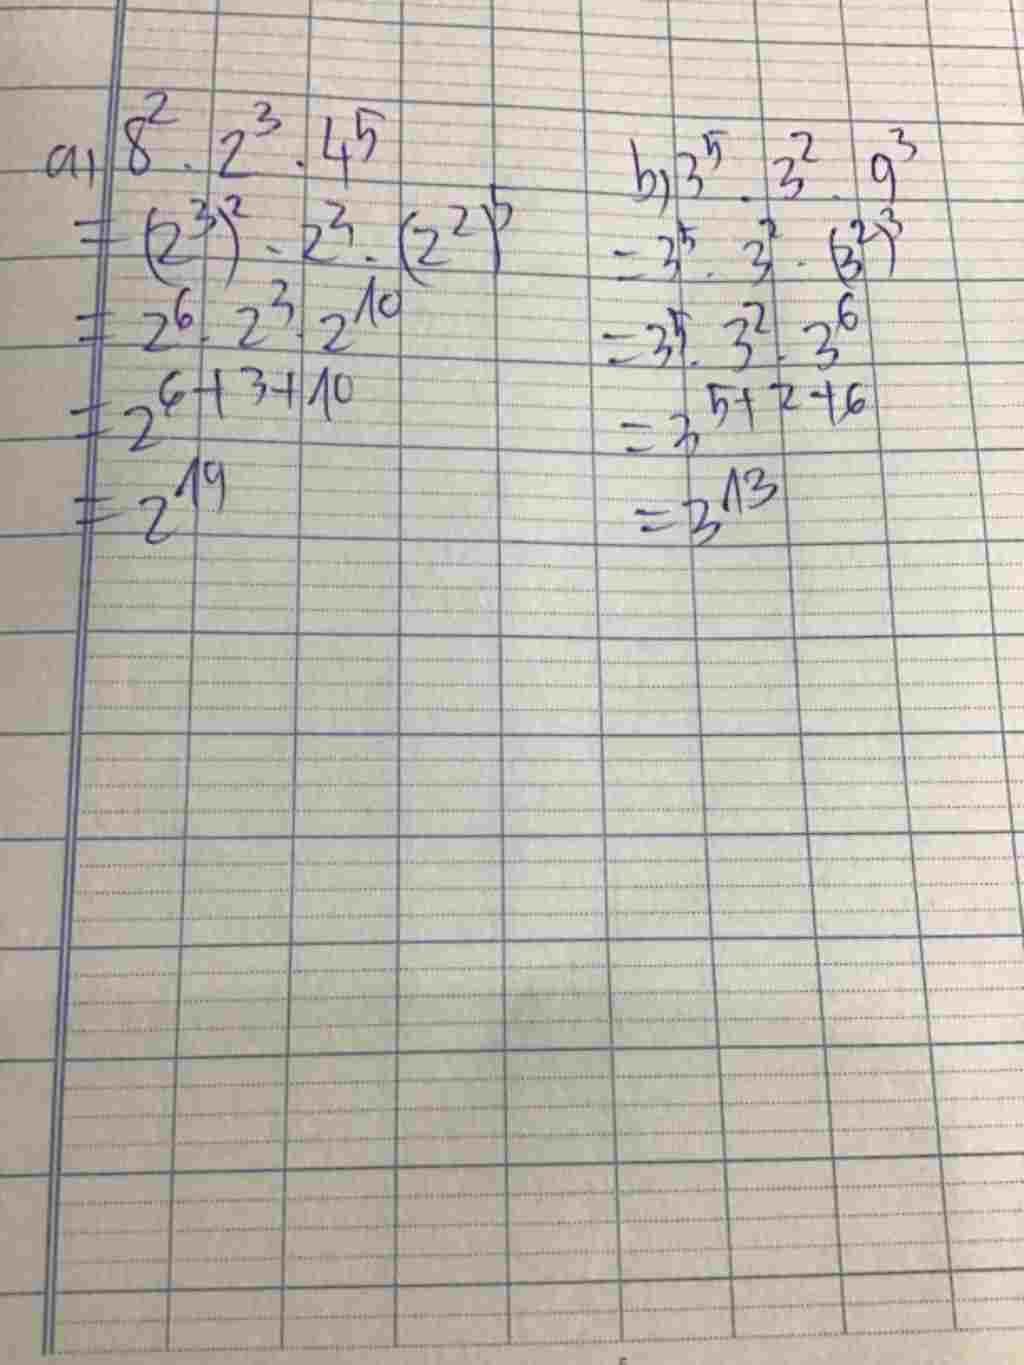 a) 8² . 2³ . 4⁵
= (2³)² . 2³ . (2²)⁵
= 2⁶ . 2³ . 2¹⁰
= 2⁶⁺³⁺¹⁰
= 2¹⁹
b) 3⁵ . 3² . 9³
= 3⁵ . 3² . (3²)³
= 3⁵ . 3² . 3⁶
= 3⁵⁺²⁺⁶
= 3¹³